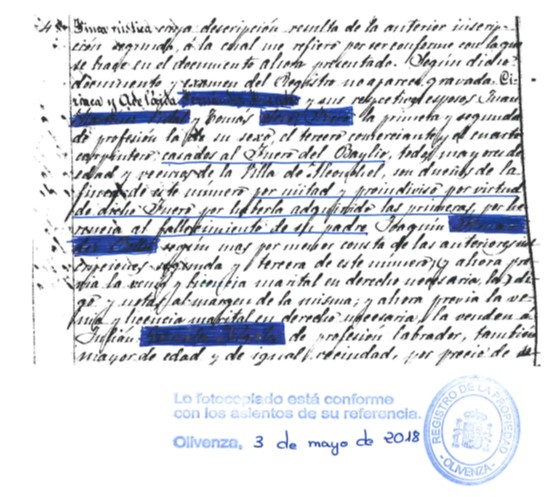 4ª Finca rústica cuya descripción resulta de la anterior inscrip-
ción segunda, á la cual me refiero por ser conforme con la que
se trae en el documento ahora presentado. Según dicho
documento y examen del Registro no aparece gravada. Ci-
riaca y Adelaida y sus respectivos esposos Juan
y Tomas la primera y segunda
de profesión la de su sexo, el tercero comerciante y el cuarto
carpintero, casados al Fuero del Baylio, todos mayores de
edad y vecinos de la Villa de Alconchel, son dueños de la
finca de este numero por mitad y proindiviso por virtud
de dicho Fuero por haberla adquirido las primeras, por he-
rencia al fallecimiento de su padre Joaquín
según mas por menor consta de las anteriores ins-
cripciones segunda y tercera de este numero; y ahora pre-
via la venia y licencia marital en derecho necesaria, la
y notas al margen de la misma; y ahora previa la ve-
nia y licencia marital en derecho necesaria la venden a
Julián de profesión labrador, tambien
mayor de edad y de igual vecindad, por precio de
Lo fotocopiado está conforme
con los asientos de su referencia.
Olivenza, 3 de mayo de 2018
REGISTRO DE LA PROPIEDAD
-OLIVENZA-